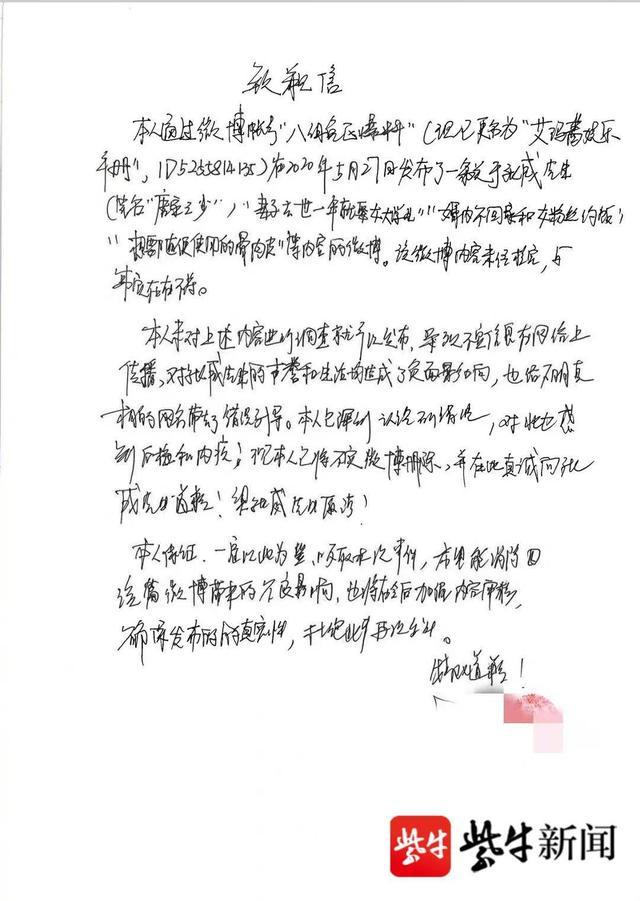 致歉信
本人通过微博帐号"八组兔区爆料"(现已更名为"艾玛酱娱乐
手册", ID5255814135)在2020年5月27日发布了一条关于张威先生
(笔名"唐家三少")"妻子去世一年就
"等内容的微博。该微博内容未经核实,与
事实存在不符。
本人未对上述内容进行调查就予以发布,导致不实信息在网络上
传播,对张威先生的声誉和生活均造成了负面影响,也给不明真
相的网友带来了错误引导。本人已深刻认识到错误,对此也感
到后悔和内疚!现本人已将不实微博删除,并在此真诚向张
威先生道歉!望张威先生原谅!
本人保证,一定以此为鉴,吸取本次事件,希望能消除因
该篇微博带来的不良影响,也将在今后加强内容审核,
确保发布内容的真实性,杜绝此事再次发生。
诚以道歉!
紫牛 紫牛新闻